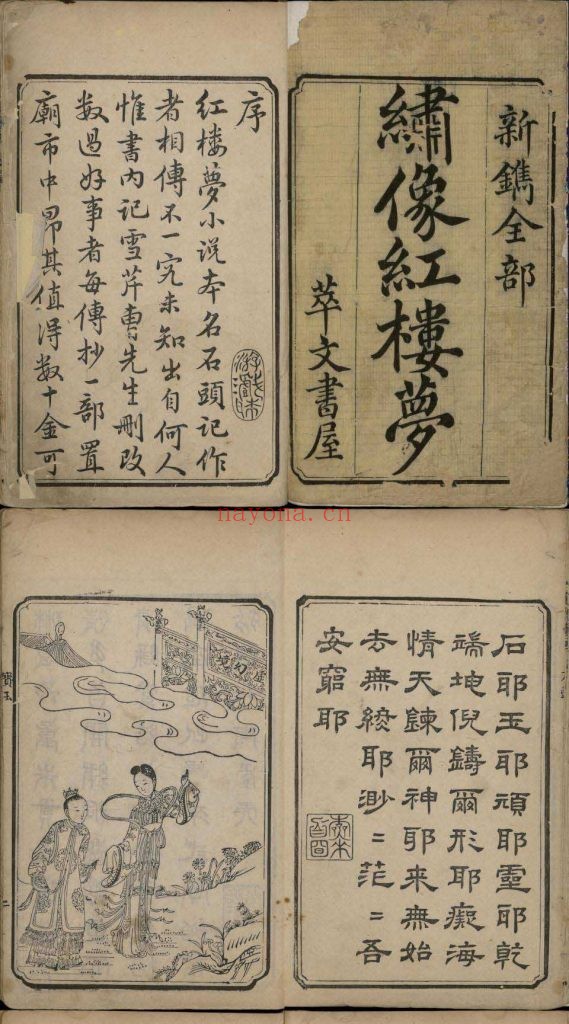 新鐫全部
繡像紅樓夢
萃文書屋
序
红楼夢小说本名石頭記作
者相傳不一究未知出自何人
惟書内記雪芹曹先生刪改
数過好事者每傳抄一部置
廟市中昂其值得数十金可
nayona.cn
石耶玉耶頑耶靈耶乾
端坤倪鑄爾形耶癡海
情天鍊爾神耶来無始
去無終耶渺〻茫〻吾
安窮耶
寶玉
二